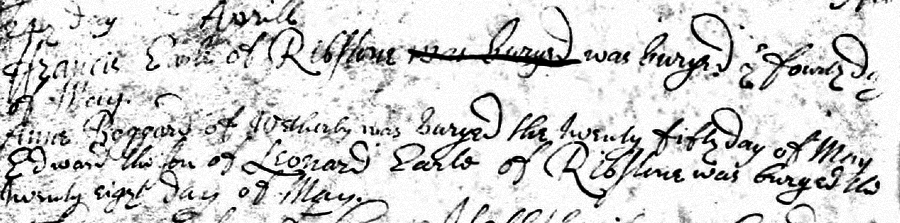 day Aprill
ffrancis Earle of Ribstone was buryed was buryed ye fourth day
of May.
Anne Beggard of Wetherby was buryed the twenty fifth day of May
Edward the son of Leonard Earle of Ribstone was buryed the
twenty eight day of May.